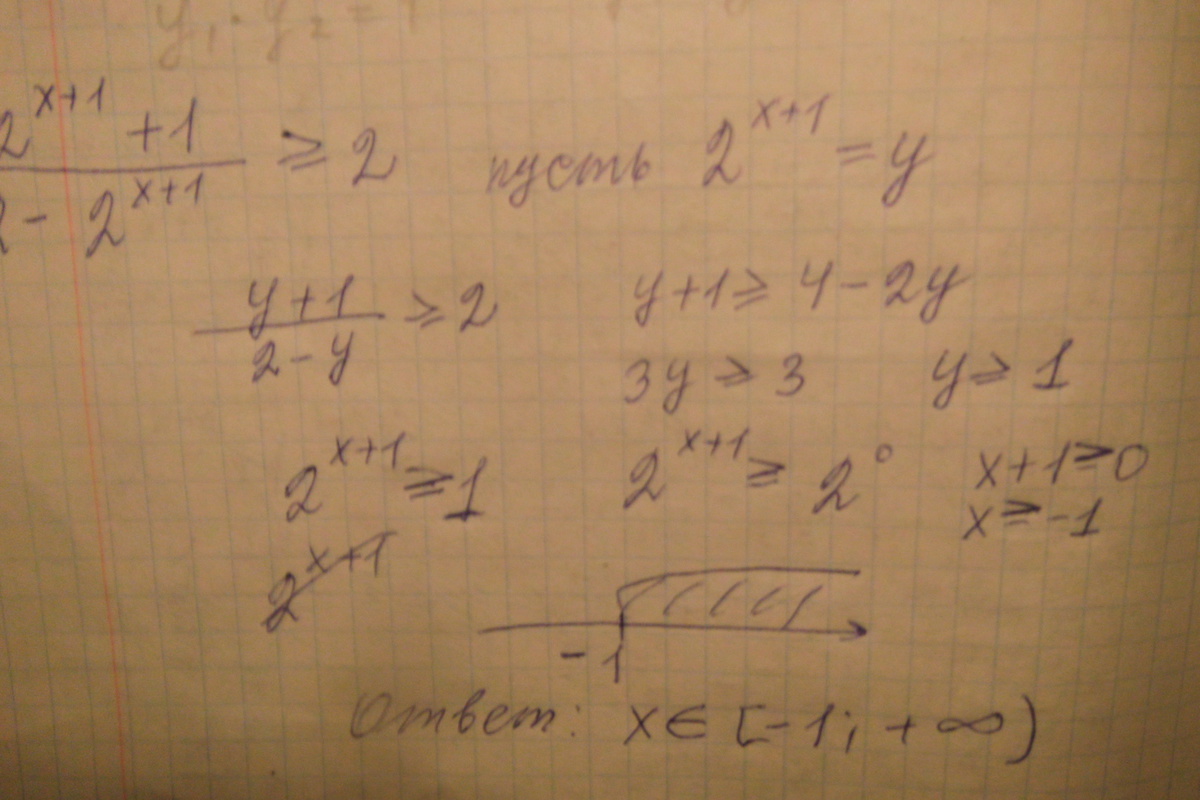 y₁ · y₂ =
2^(x+1) + 1 / 2 - 2^(x+1) ≥ 2 пусть 2^(x+1) = y
y+1 / 2-y ≥ 2 y+1 ≥ 4-2y
3y ≥ 3 y ≥ 1
2^(x+1) ≥ 1 2^(x+1) ≥ 2^0 x+1 ≥ 0
x ≥ -1
2^(x+1)
-1
Ответ: x ∈ [-1; +∞)